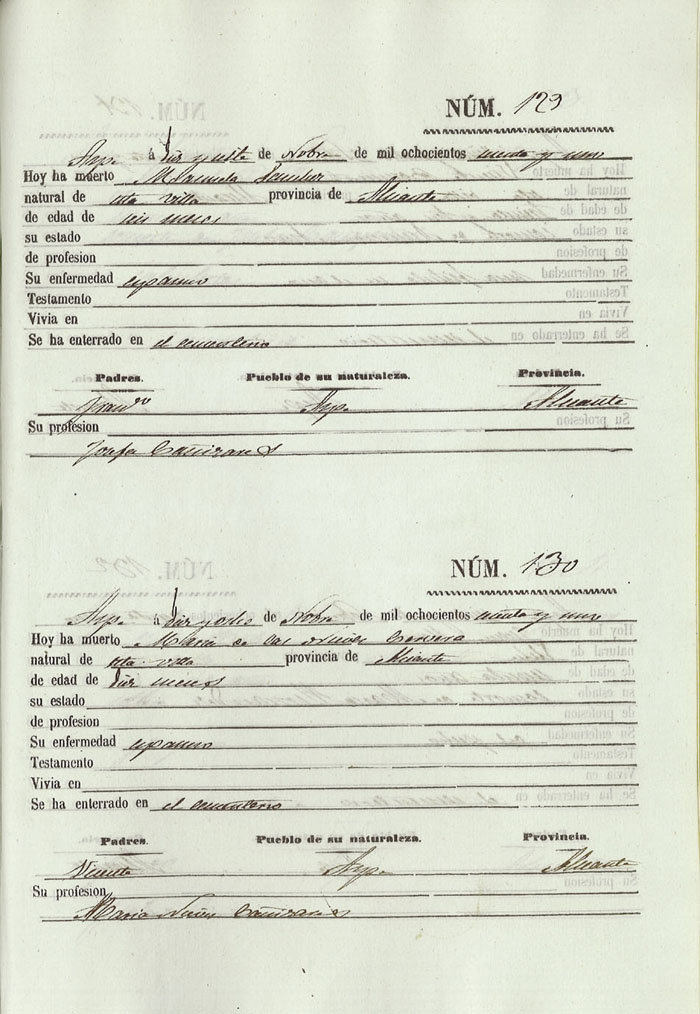 NÚM. 129
Aspe á diez y siete de Nobre de mil ochocientos ochenta y uno
Hoy ha muerto Manuela Sanchez
natural de esta villa provincia de Alicante
de edad de seis meses
su estado
de profesion
Su enfermedad espasmo
Testamento
Vivia en
Se ha enterrado en el cementerio
Padres. Pueblo de su naturaleza. Provincia.
Franco Aspe Alicante
Su profesion
Josefa Cañizares
NÚM. 130
Aspe á diez y ocho de Nobre de mil ochocientos ochenta y uno
Hoy ha muerto Maria de las Nieves Cervera
natural de esta villa provincia de Alicante
de edad de diez meses
su estado
de profesion
Su enfermedad espasmo
Testamento
Vivia en
Se ha enterrado en el cementerio
Padres. Pueblo de su naturaleza. Provincia.
Vicente Aspe Alicante
Su profesion
Maria Cañizares